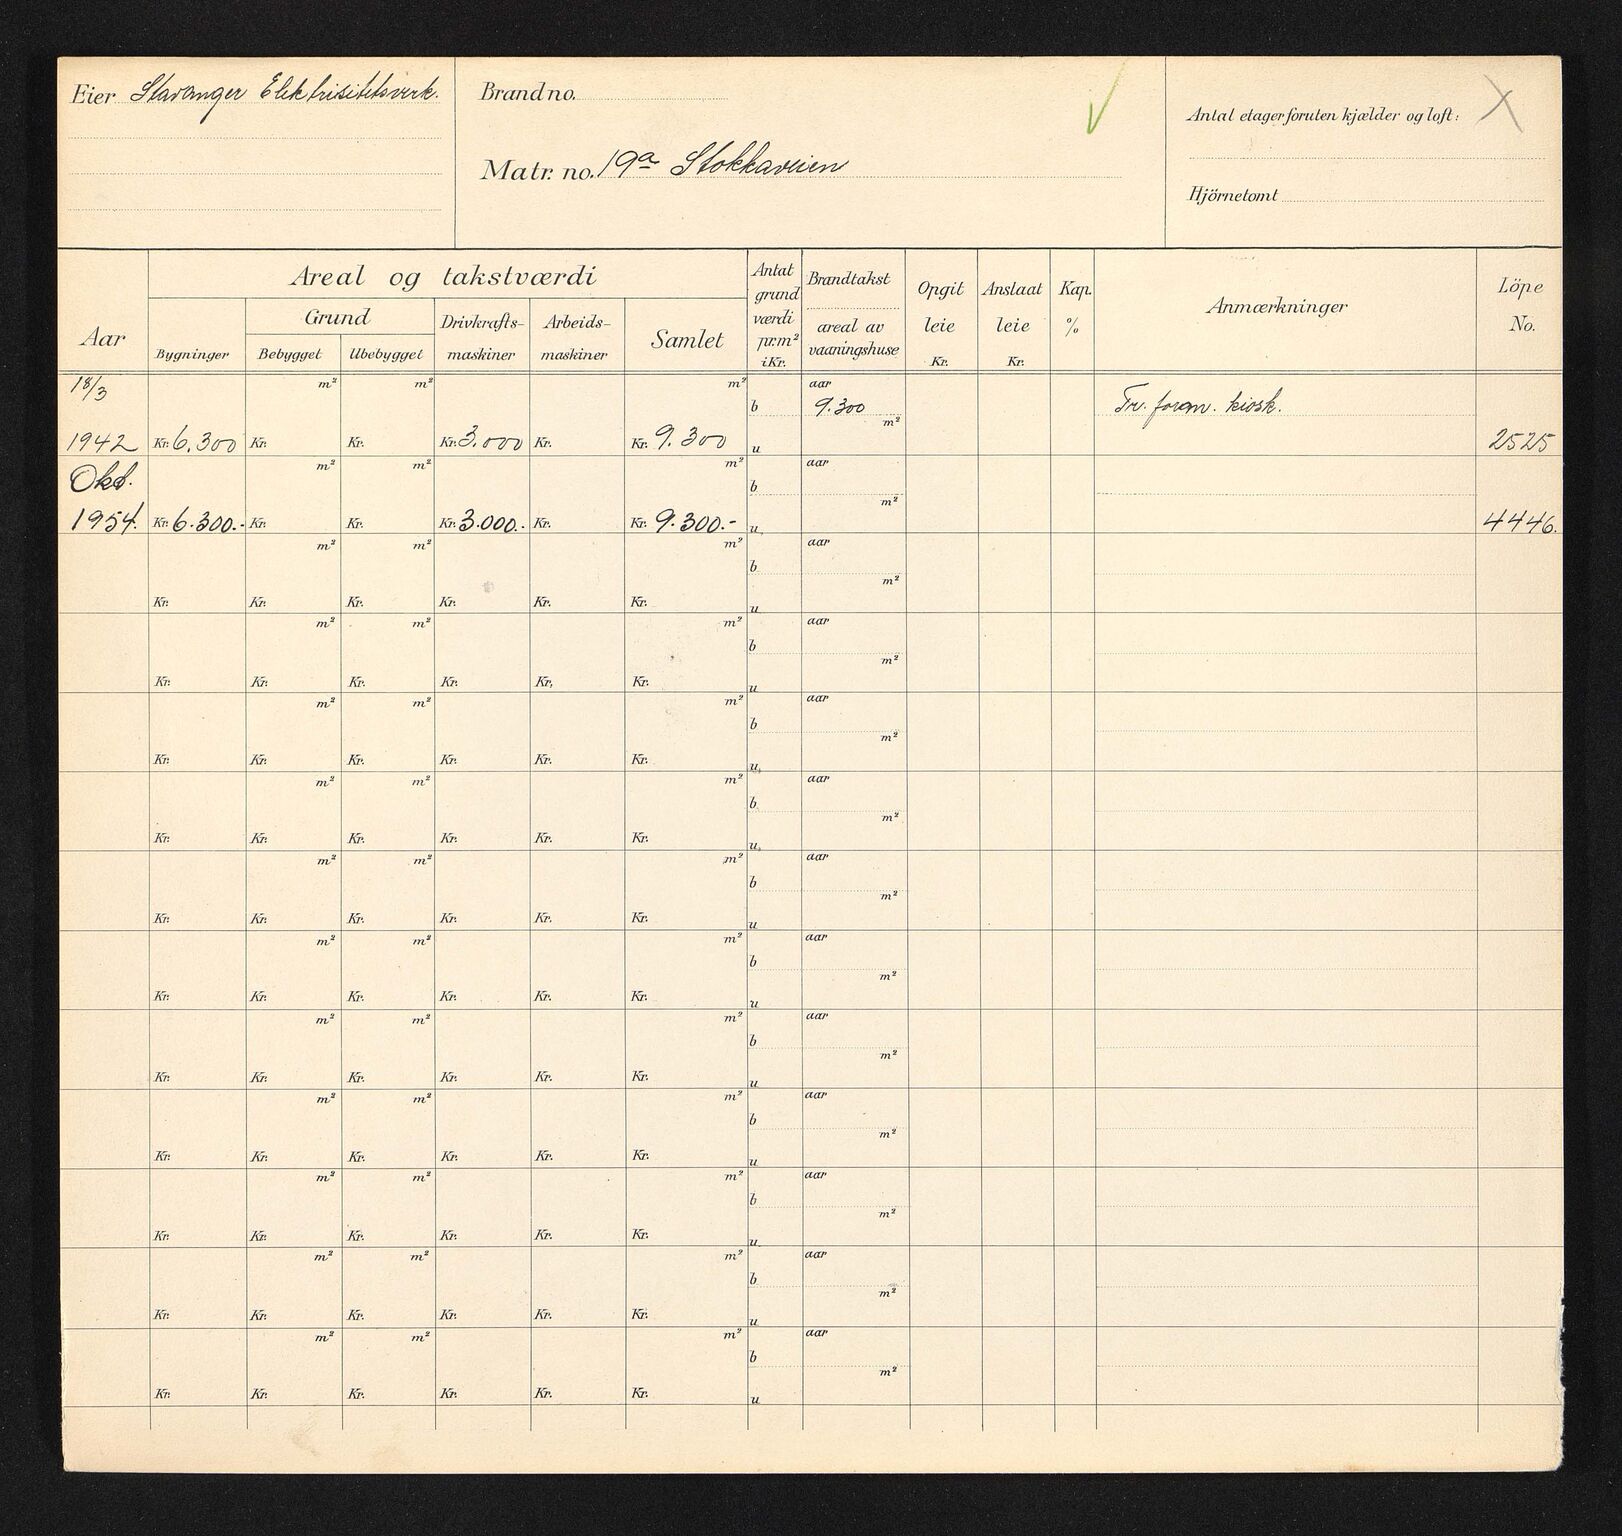 Eier Stavanger Elektrisitetsverk.
Brandno.
Matr. no. 19a Stokkaveien
Antal etager foruten kjælder og loft:
Hjörnetomt
Aar
Areal og takstværdi
Bygninger
Grund
Bebygget
Ubebygget
Drivkrafts-
maskiner
Arbeids-
maskiner
Samlet
Antat
grund
værdi
pr.m²
i Kr.
Brandtakst
areal av
vaaningshuse
Opgit
leie
Kr.
Anslaat
leie
Kr.
Kap.
%
Anmærkninger
Löpe
No.
18/3 m² m² m² aar
b 9.300 Tr. form. kiosk.
m²
1942 Kr. 6.300 Kr. Kr. Kr. 3.000 Kr. Kr. 9.300 u 2525
Okt. m² m² m² aar
b
m²
1954. Kr. 6.300.- Kr. Kr. Kr. 3.000.- Kr. Kr. 9.300.- u 4446.
m² m² m² aar
b
m²
Kr. Kr. Kr. Kr. Kr. Kr. u
m² m² m² aar
b
m²
Kr. Kr. Kr. Kr. Kr. Kr. u
m² m² m² aar
b
m²
Kr. Kr. Kr. Kr. Kr. Kr. u
m² m² m² aar
b
m²
Kr. Kr. Kr. Kr. Kr. Kr. u
m² m² m² aar
b
m²
Kr. Kr. Kr. Kr. Kr. Kr. u
m² m² m² aar
b
m²
Kr. Kr. Kr. Kr. Kr. Kr. u
m² m² m² aar
b
m²
Kr. Kr. Kr. Kr. Kr. Kr. u
m² m² m² aar
b
m²
Kr. Kr. Kr. Kr. Kr. Kr. u
m² m² m² aar
b
m²
Kr. Kr. Kr. Kr. Kr. Kr. u
m² m² m² aar
b
m²
Kr. Kr. Kr. Kr. Kr. Kr. u
m² m² m² aar
b
m²
Kr. Kr. Kr. Kr. Kr. Kr. u